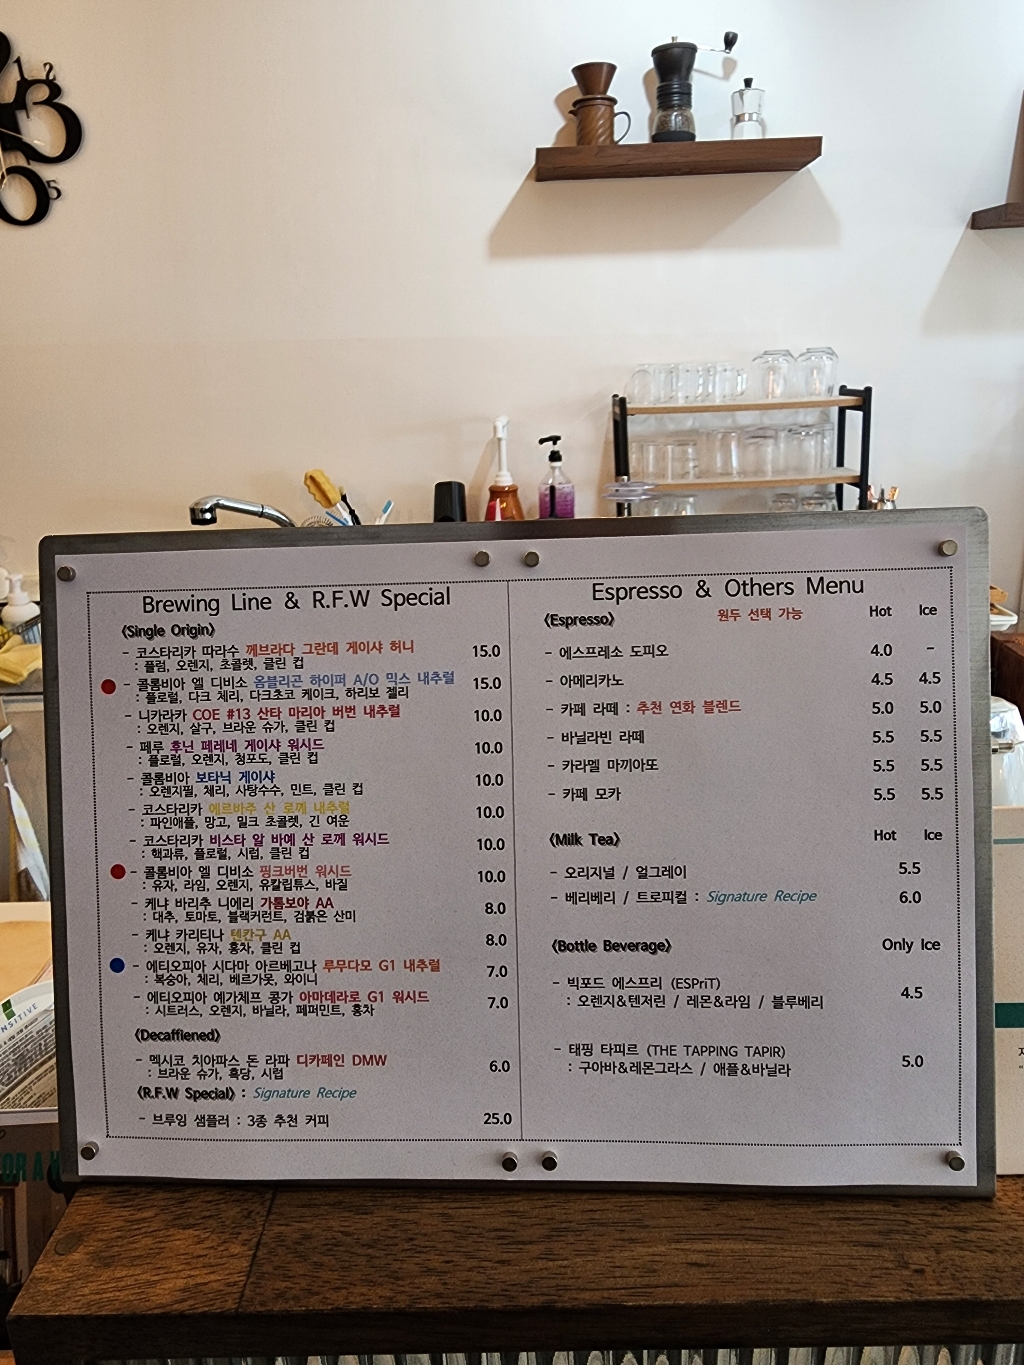 12
3
5
Brewing Line & R.F.W Special
《Single Origin》
- 코스타리카 따라수 께브라다 그란데 게이샤 허니 15.0
: 플럼, 오렌지, 초콜렛, 클린 컵
- 콜롬비아 엘 디비소 옴블리곤 하이퍼 A/O 믹스 내추럴 15.0
: 플로럴, 다크 체리, 다크초코 케이크, 하리보 젤리
- 니카라카 COE #13 산타 마리아 버번 내추럴 10.0
: 오렌지, 살구, 브라운 슈가, 클린 컵
- 페루 후닌 페레네 게이샤 워시드 10.0
: 플로럴, 오렌지, 청포도, 클린 컵
- 콜롬비아 보타닉 게이샤 10.0
: 오렌지필, 체리, 사탕수수, 민트, 클린 컵
- 코스타리카 에르바주 산 로께 내추럴 10.0
: 파인애플, 망고, 밀크 초콜렛, 긴 여운
- 코스타리카 비스타 알 바예 산 로께 워시드 10.0
: 핵과류, 플로럴, 시럽, 클린 컵
- 콜롬비아 엘 디비소 핑크버번 워시드 10.0
: 유자, 라임, 오렌지, 유칼립튜스, 바질
- 케냐 바리추 니에리 가톰보야 AA 8.0
: 대추, 토마토, 블랙커런트, 검붉은 산미
- 케냐 카리티나 텐칸구 AA 8.0
: 오렌지, 유자, 홍차, 클린 컵
- 에티오피아 시다마 아르베고나 루무다모 G1 내추럴 7.0
: 복숭아, 체리, 베르가못, 와이니
- 에티오피아 예가체프 콩가 아마데라로 G1 워시드 7.0
: 시트러스, 오렌지, 바닐라, 페퍼민트, 홍차
《Decaffiened》
- 멕시코 치아파스 돈 라파 디카페인 DMW 6.0
: 브라운 슈가, 흑당, 시럽
《R.F.W Special》 : Signature Recipe
- 브루잉 샘플러 : 3종 추천 커피 25.0
Espresso & Others Menu
《Espresso》 원두 선택 가능 Hot Ice
- 에스프레소 도피오 4.0 -
- 아메리카노 4.5 4.5
- 카페 라떼 : 추천 연화 블렌드 5.0 5.0
- 바닐라빈 라떼 5.5 5.5
- 카라멜 마끼아또 5.5 5.5
- 카페 모카 5.5 5.5
《Milk Tea》 Hot Ice
- 오리지널 / 얼그레이 5.5
- 베리베리 / 트로피컬 : Signature Recipe 6.0
《Bottle Beverage》 Only Ice
- 빅포드 에스프리 (ESPriT) 4.5
: 오렌지&텐저린 / 레몬&라임 / 블루베리
- 태핑 타피르 (THE TAPPING TAPIR) 5.0
: 구아바&레몬그라스 / 애플&바닐라